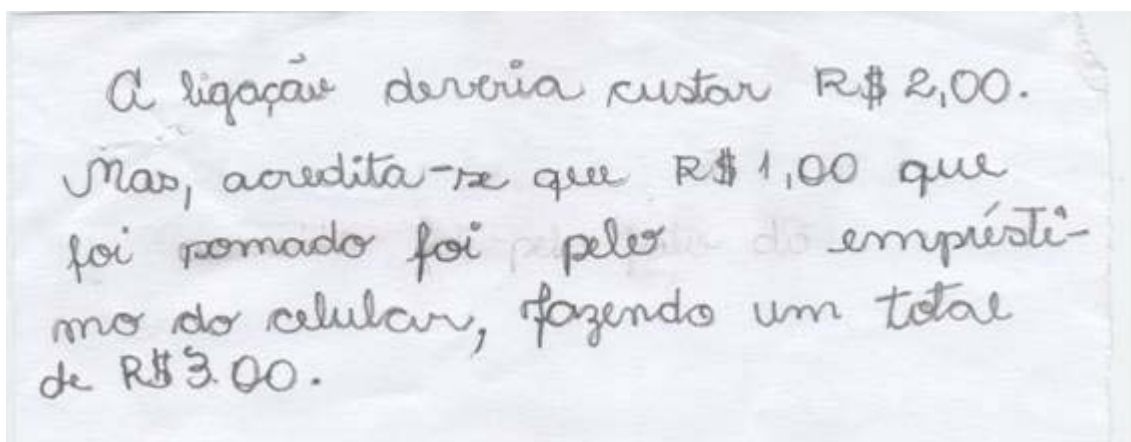 A ligação deveria custar R$ 2,00.
Mas, acredita-se que R$ 1,00 que
foi somado foi pelo emprésti-
mo do celular, fazendo um total
de R$ 3.00.